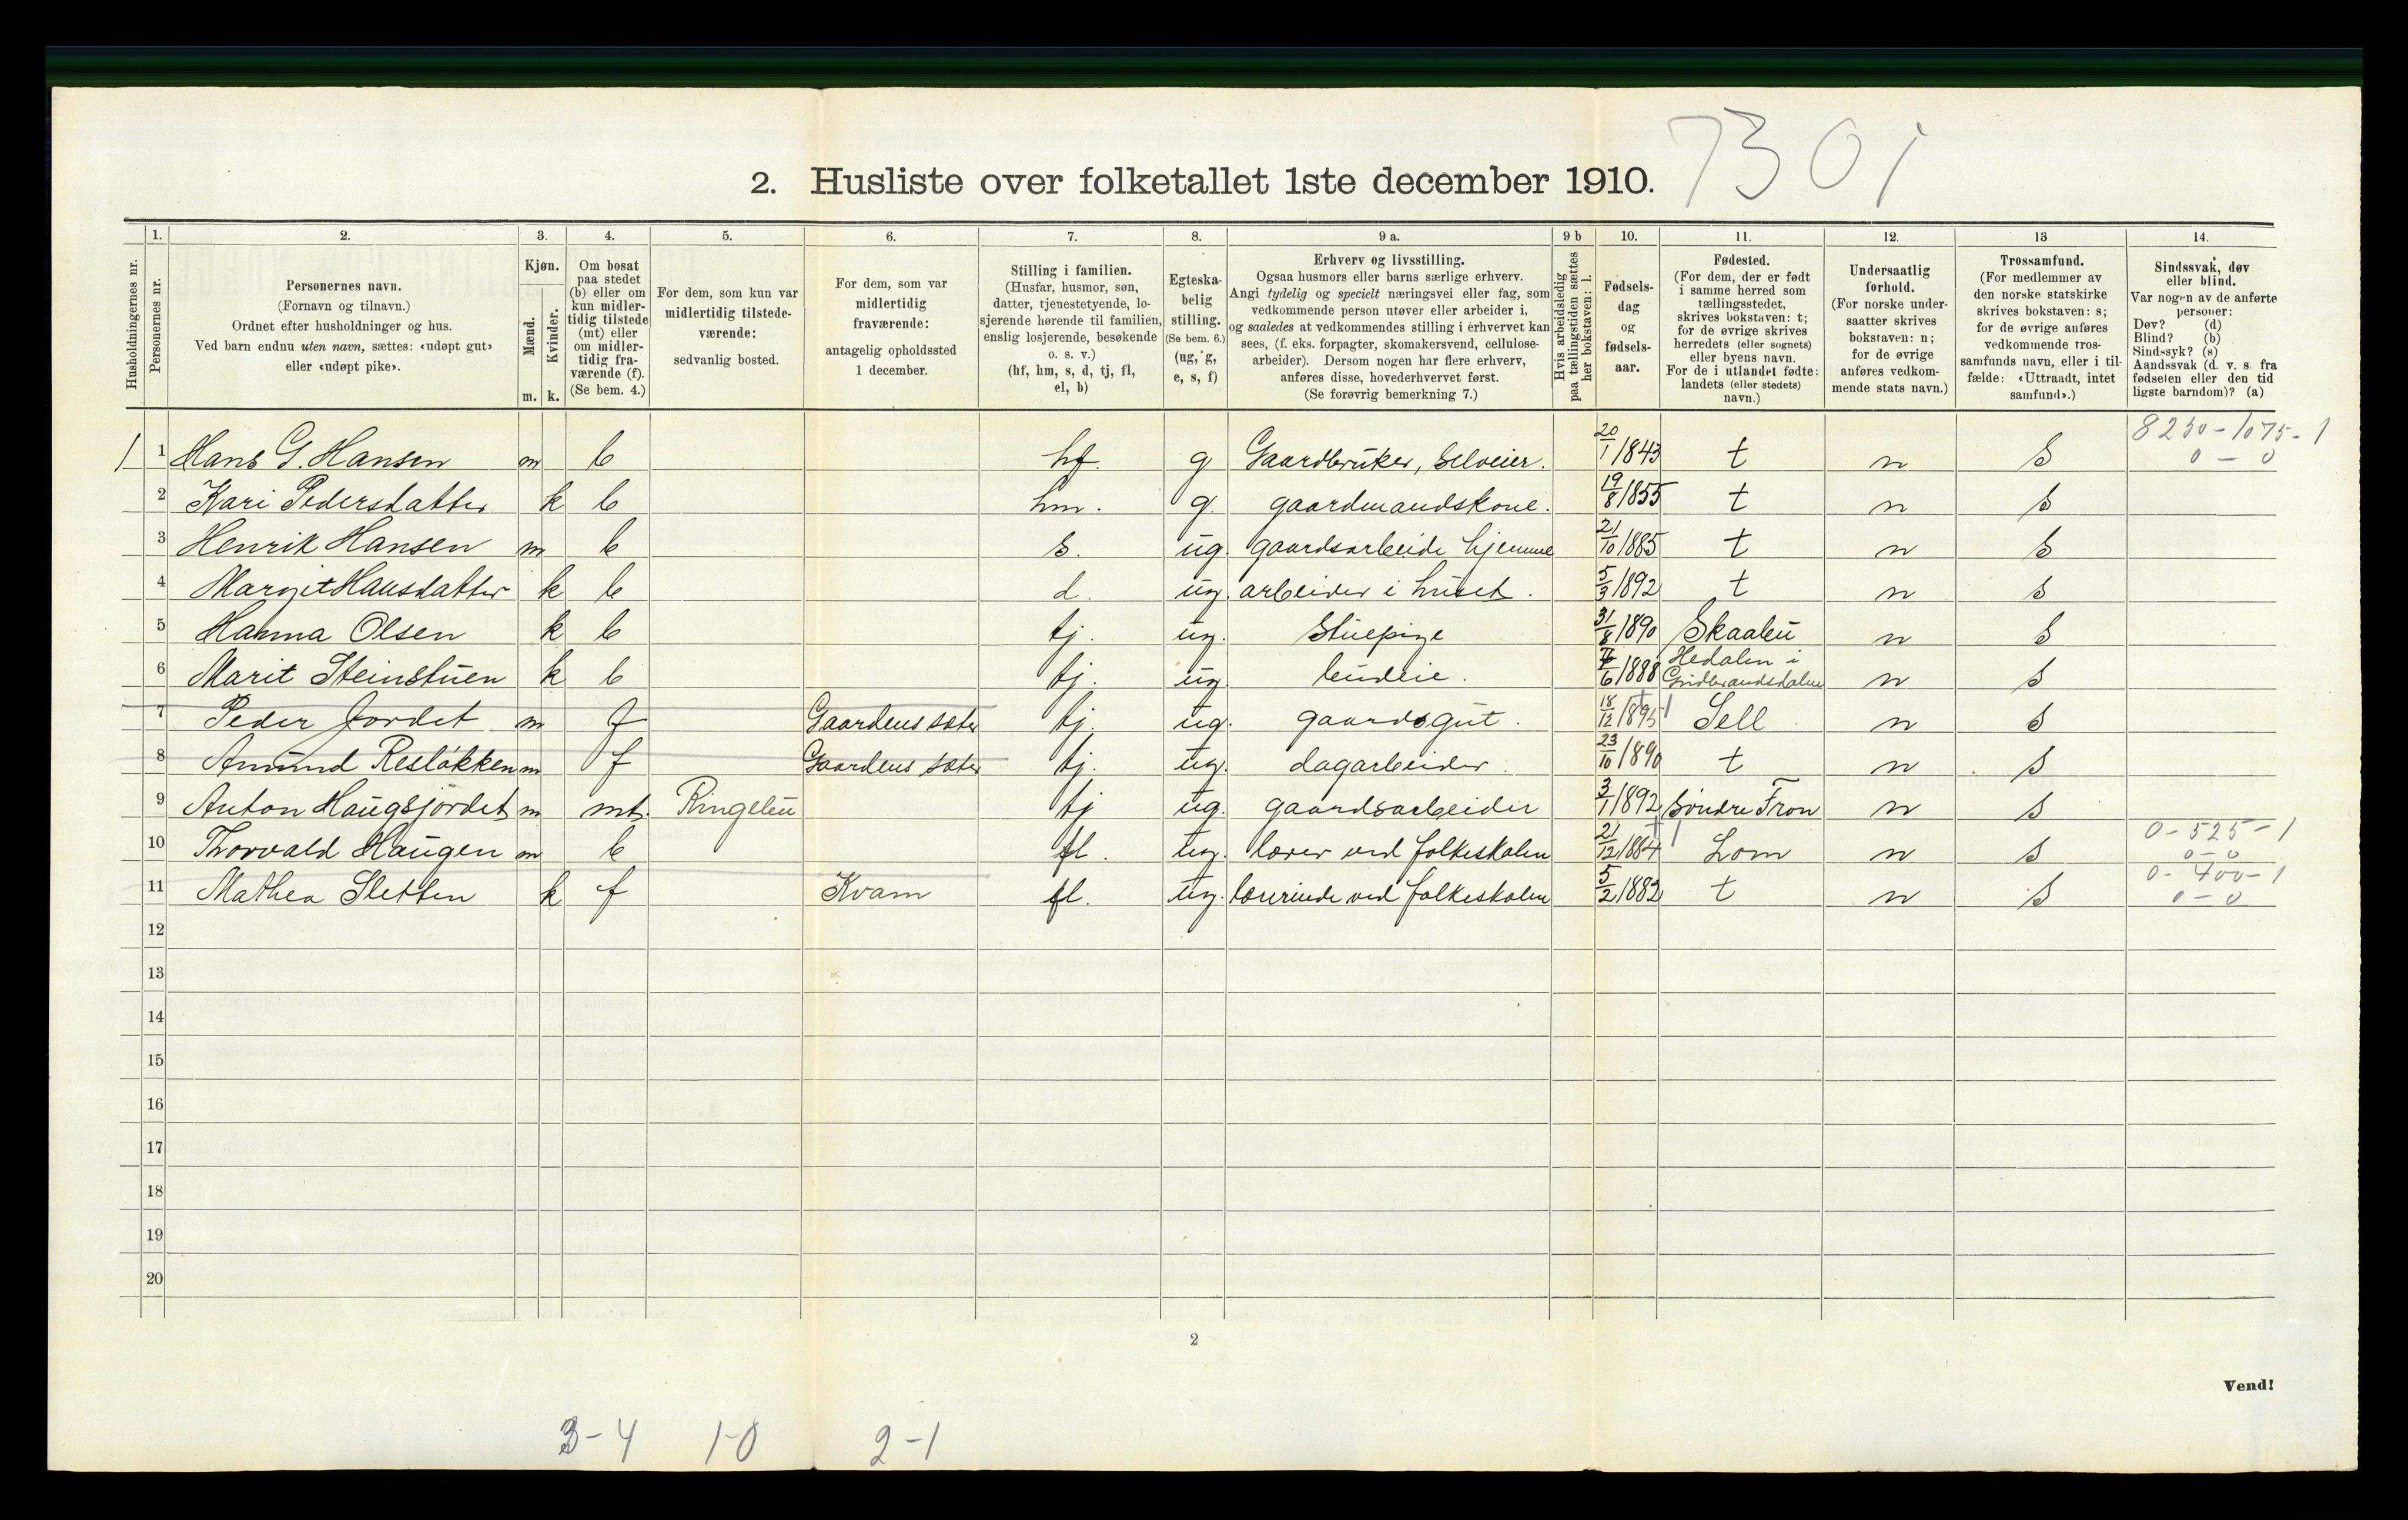 7301
2. Husliste over folketallet 1ste december 1910.
Husholdningernes nr.
1.
Personernes nr.
2.
Personernes navn.
(Fornavn og tilnavn.)
Ordnet efter husholdninger og hus.
Ved barn endnu uten navn, sættes: «udøpt gut»
eller «udøpt pike».
3.
Kjøn.
Mænd.
Kvinder.
m. k.
4.
Om bosat
paa stedet
(b) eller om
kun midler-
tidig tilstede
(mt) eller
om midler-
tidig fra-
værende (f).
(Se bem. 4.)
5.
For dem, som kun var
midlertidig tilstede-
værende:
sedvanlig bosted.
6.
For dem, som var
midlertidig
fraværende:
antagelig opholdssted
1 december.
7.
Stilling i familien.
(Husfar, husmor, søn,
datter, tjenestetyende, lo-
sjerende hørende til familien,
enslig losjerende, besøkende
o. s. v.)
(hf, hm, s, d, tj, fl,
el, b)
8.
Egteska-
belig
stilling.
(Se bem. 6.)
(ug, g,
e, s, f)
9 a.
Erhverv og livsstilling.
Ogsaa husmors eller barns særlige erhverv.
Angi tydelig og specielt næringsvei eller fag, som
vedkommende person utøver eller arbeider i,
og saaledes at vedkommendes stilling i erhvervet kan
sees, (f. eks. forpagter, skomakersvend, cellulose-
arbeider). Dersom nogen har flere erhverv,
anføres disse, hovederhvervet først.
(Se forøvrig bemerkning 7.)
9 b
Hvis arbeidsledig
paa tællingstiden sættes
her bokstaven: l.
10.
Fødsels-
dag
og
fødsels-
aar.
11.
Fødested.
(For dem, der er født
i samme herred som
tællingsstedet,
skrives bokstaven: t;
for de øvrige skrives
herredets (eller sognets)
eller byens navn.
For de i utlandet fødte:
landets (eller stedets)
navn.)
12.
Undersaatlig
forhold.
(For norske under-
saatter skrives
bokstaven: n;
for de øvrige
anføres vedkom-
mende stats navn.)
13
Trossamfund.
(For medlemmer av
den norske statskirke
skrives bokstaven: s;
for de øvrige anføres
vedkommende tros-
samfunds navn, eller i til-
fælde: «Uttraadt, intet
samfund».)
14.
Sindssvak, døv
eller blind.
Var nogen av de anførte
personer:
Døv? (d)
Blind? (b)
Sindssyk? (s)
Aandssvak (d. v. s. fra
fødselen eller den tid
ligste barndom)? (a)
1 1 Hans G. Hansen m b hf. g Gaardbruker, selveier. 20/1 1843 t n s 8250-1075-1
0 - 0
2 Kari Pedersdatter k b hm. g. gaardmandskone. 19/8 1855 t n s
3 Henrik Hansen m b s. ug. gaardsarbeide hjemme 21/10 1885 t n s
4 Margit Hansdatter k b d. ug. arbeider i huset. 5/3 1892 t n s
5 Hanna Olsen k b tj. ug. Stuepige 31/8 1890 Skaabu n s
6 Marit Steinstuen k b tj. ug. budeie. /6 1888 Hedalen i Gudbrandsdalen n s
7 Peder Jordet m f Gaardens sæter tj. ug. gaardsgut. 18/12 1895 Sell n s
8 Amund Resløkken m f Gaardens sæter tj. ug. dagarbeider. 23/10 1890 t n s
9 Anton Haugsjordet m mt. Ringebu tj ug. gaardsarbeider 3/1 1892 Søndre Fron n s
10 Thorvald Haugen m b fl. ug. lærer ved folkeskolen 21/12 1884 Lom n s 0-525-1
0-0
11 Mathea Sletten k f Kvam fl. ug. lærerinde ved folkeskolen 5/2 1882 t n s 0-400-1
0-0
12
13
14
15
16
17
18
19
20
2
Vend!
3-4 1-0 2-1